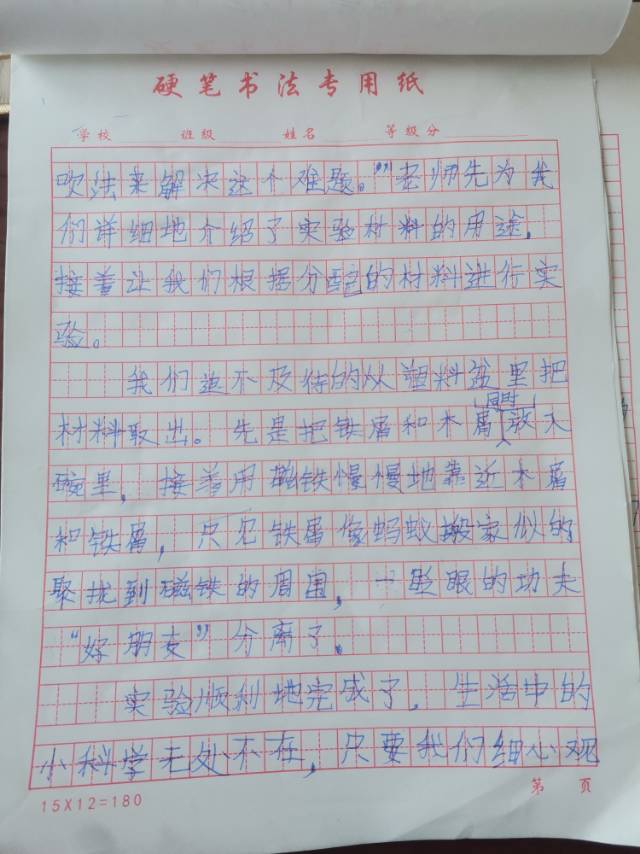 硬笔书法专用纸
学校 班级 姓名 等级分
吹法来解决这个难题。”老师先为我
们详细地介绍了实验材料的用途，
接着让我们根据分配的材料进行实
验。
我们迫不及待的从塑料盆里把
同时
材料取出。先是把铁屑和木屑放入
碗里，接着用磁铁慢慢地靠近木屑
和铁屑，只见铁屑像蚂蚁搬家似的
聚拢到磁铁的周围，一眨眼的功夫
“好朋友”分离了。
实验顺利地完成了。生活中的
小科学无处不在，只要我们细心观
15X12=180
第 页